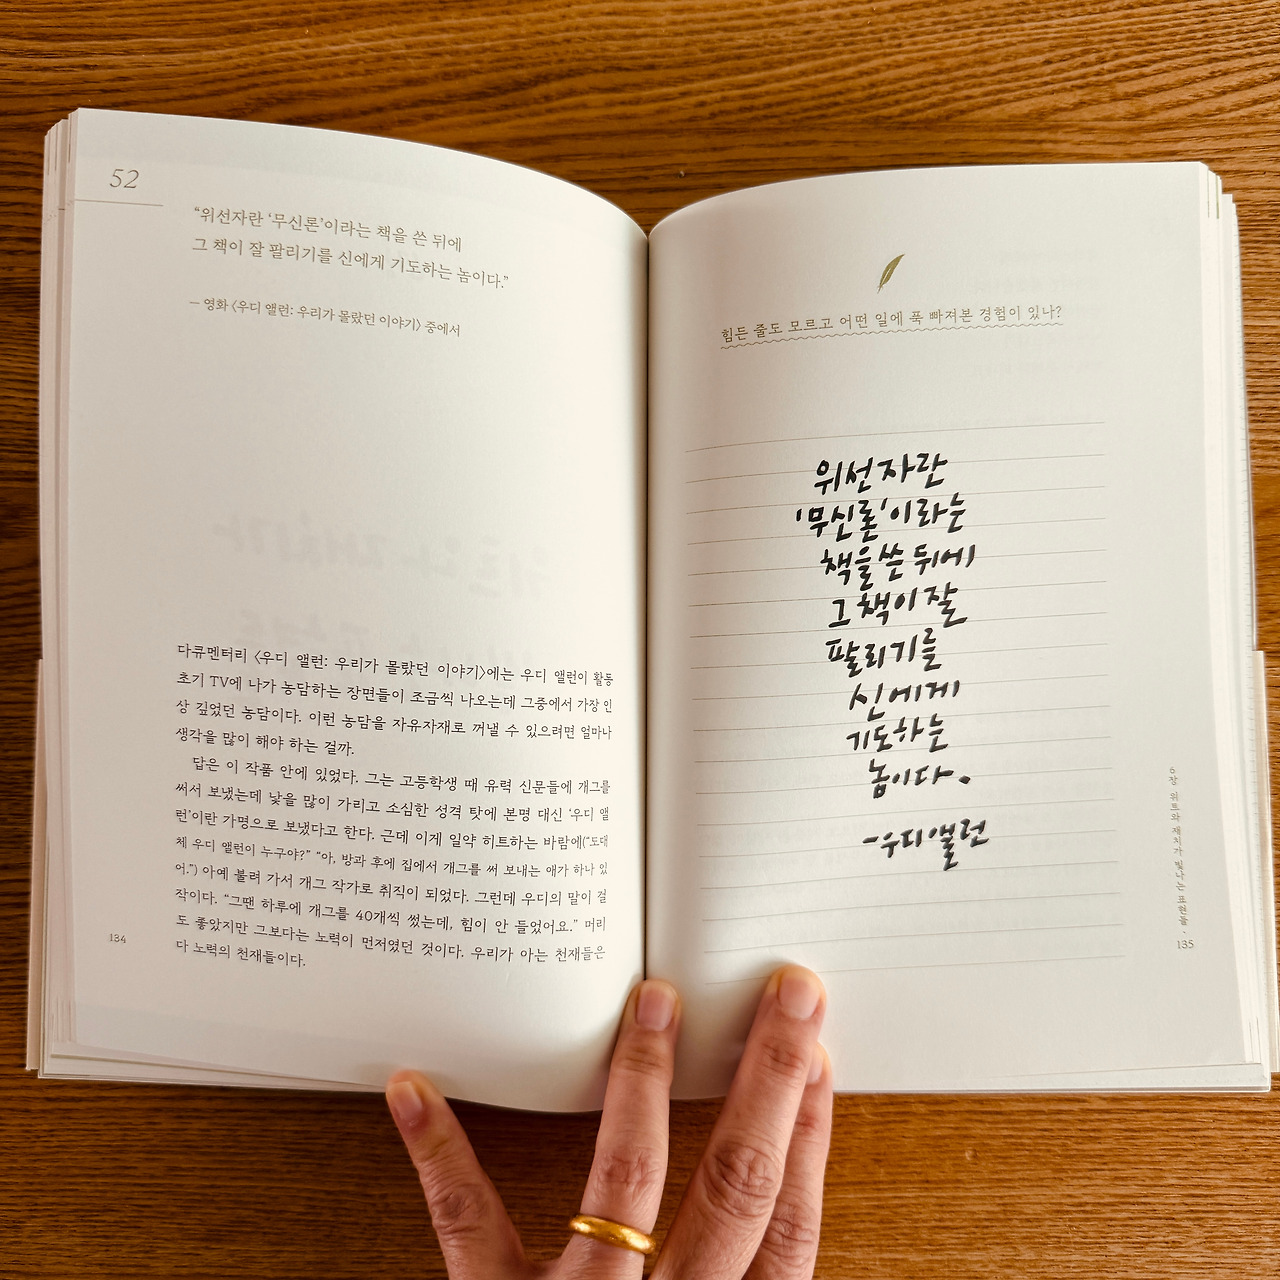 52
“위선자란 ‘무신론’이라는 책을 쓴 뒤에
그 책이 잘 팔리기를 신에게 기도하는 놈이다.”
– 영화 〈우디 앨런: 우리가 몰랐던 이야기〉 중에서
다큐멘터리 〈우디 앨런: 우리가 몰랐던 이야기〉에는 우디 앨런이 활동
초기 TV에 나가 농담하는 장면들이 조금씩 나오는데 그중에서 가장 인
상 깊었던 농담이다. 이런 농담을 자유자재로 꺼낼 수 있으려면 얼마나
생각을 많이 해야 하는 걸까.
답은 이 작품 안에 있었다. 그는 고등학생 때 유력 신문들에 개그를
써서 보냈는데 낯을 많이 가리고 소심한 성격 탓에 본명 대신 ‘우디 앨
런’이란 가명으로 보냈다고 한다. 근데 이게 일약 히트하는 바람에(“도대
체 우디 앨런이 누구야?” “아, 방과 후에 집에서 개그를 써 보내는 애가 하나 있
어.”) 아예 불려 가서 개그 작가로 취직이 되었다. 그런데 우디의 말이 걸
작이다. “그땐 하루에 개그를 40개씩 썼는데, 힘이 안 들었어요.” 머리
도 좋았지만 그보다는 노력이 먼저였던 것이다. 우리가 아는 천재들은
다 노력의 천재들이다.
134
힘든 줄도 모르고 어떤 일에 푹 빠져본 경험이 있나?
위선자란
‘무신론’이라는
책을 쓴 뒤에
그 책이 잘
팔리기를
신에게
기도하는
놈이다.
-우디앨런
6장 위트와 재치가 빛나는 표현들 · 135